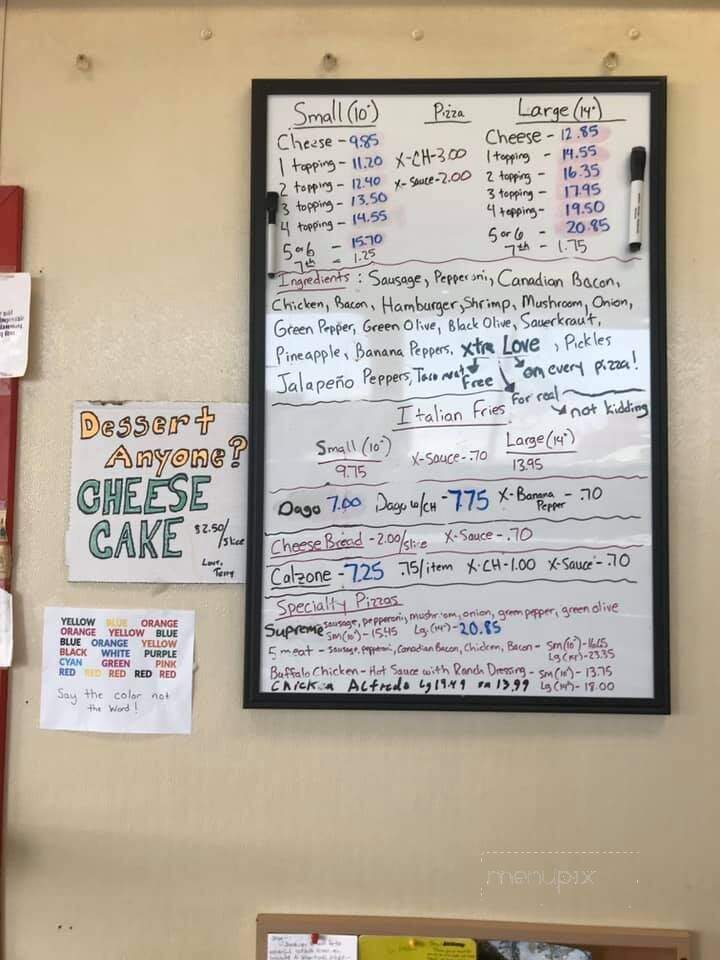 Small (10")
Pizza
Large (14")
Cheese - 9.85
1 topping - 11.20
2 topping - 12.40
3 topping - 13.50
4 topping - 14.55
5 or 6 - 15.70
7th = 1.25
X-CH-3.00
X-Sauce-2.00
Cheese - 12.85
1 topping - 14.55
2 topping - 16.35
3 topping - 17.95
4 topping - 19.50
5 or 6 - 20.85
7th - 1.75
Ingredients: Sausage, Pepperoni, Canadian Bacon,
Chicken, Bacon, Hamburger, Shrimp, Mushroom, Onion,
Green Pepper, Green Olive, Black Olive, Sauerkraut,
Pineapple, Banana Peppers, xtra Love, Pickles
Jalapeño Peppers, Taco meat Free on every pizza!
for real
not kidding
Italian Fries
Small (10")
9.75
X-Sauce-.70
Large (14")
13.95
Dago 7.00 Dago w/CH - 7.75 X-Banana Pepper - .70
Cheese Bread - 2.00/slice X-Sauce - .70
Calzone - 7.25 .75/item X-CH-1.00 X-Sauce - .70
Specialty Pizzas
Supreme sausage, pepperoni, mushroom, onion, green pepper, green olive
Sm(10")- 15.45 Lg.(14")-20.85
5 meat - sausage, pepperoni, Canadian Bacon, Chicken, Bacon - Sm(10")-16.25
Lg(14")-23.35
Buffalo Chicken - Hot Sauce with Ranch Dressing - Sm(10") - 13.75
Lg(14") - 18.00
Chicken Alfredo Lg 19.49 sm 13.99
Dessert
Anyone?
CHEESE
CAKE
$2.50/
slice
Love,
Terry
YELLOW BLUE ORANGE
ORANGE YELLOW BLUE
BLUE ORANGE YELLOW
BLACK WHITE PURPLE
CYAN GREEN PINK
RED RED RED RED RED
Say the color not
the Word!
menupix